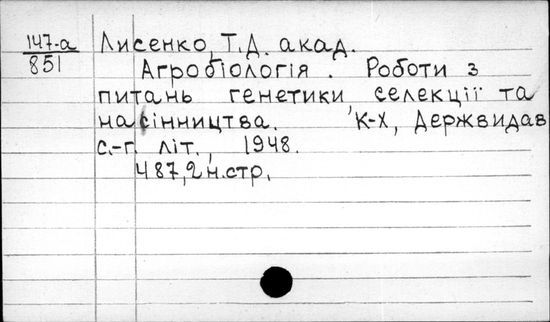 147-а Лисенко, Т.Д. акад.
851
Агробіологія. Роботи з
питань генетики селекції та
насінництва. К-Х, Держвидав
с.-г. літ., 1948.
487,2н.стр.